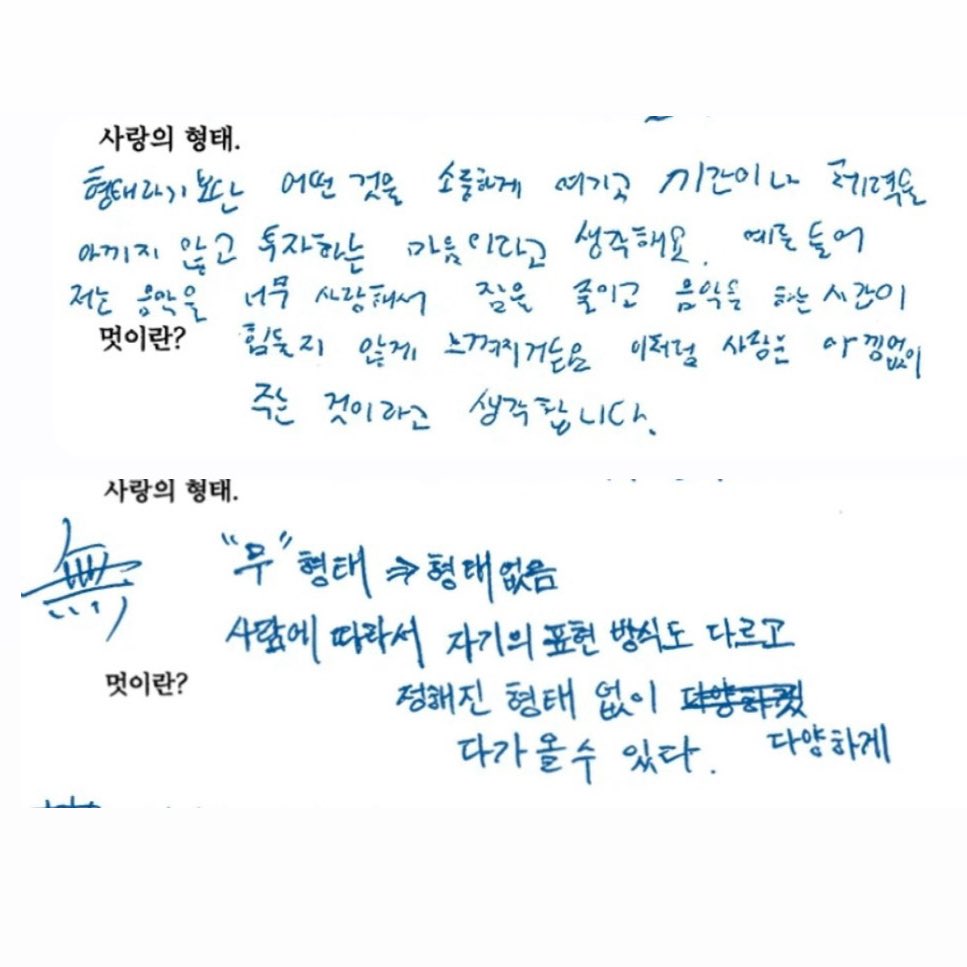 사랑의 형태.
형태라기 보단 어떤 것을 소중하게 여기고 시간이나 체력을
아끼지 않고 투자하는 마음이라고 생각해요. 예를 들어
저는 음악을 너무 사랑해서 잠을 줄이고 음악을 하는 시간이
멋이란? 힘들지 않게 느껴지거든요 이처럼 사랑은 아낌없이
주는 것이라고 생각합니다.
사랑의 형태.
無 "무" 형태 ⇒ 형태 없음
사람에 따라서 자기의 표현 방식도 다르고
멋이란? 정해진 형태 없이 다양하게
다가올 수 있다. 다양하게